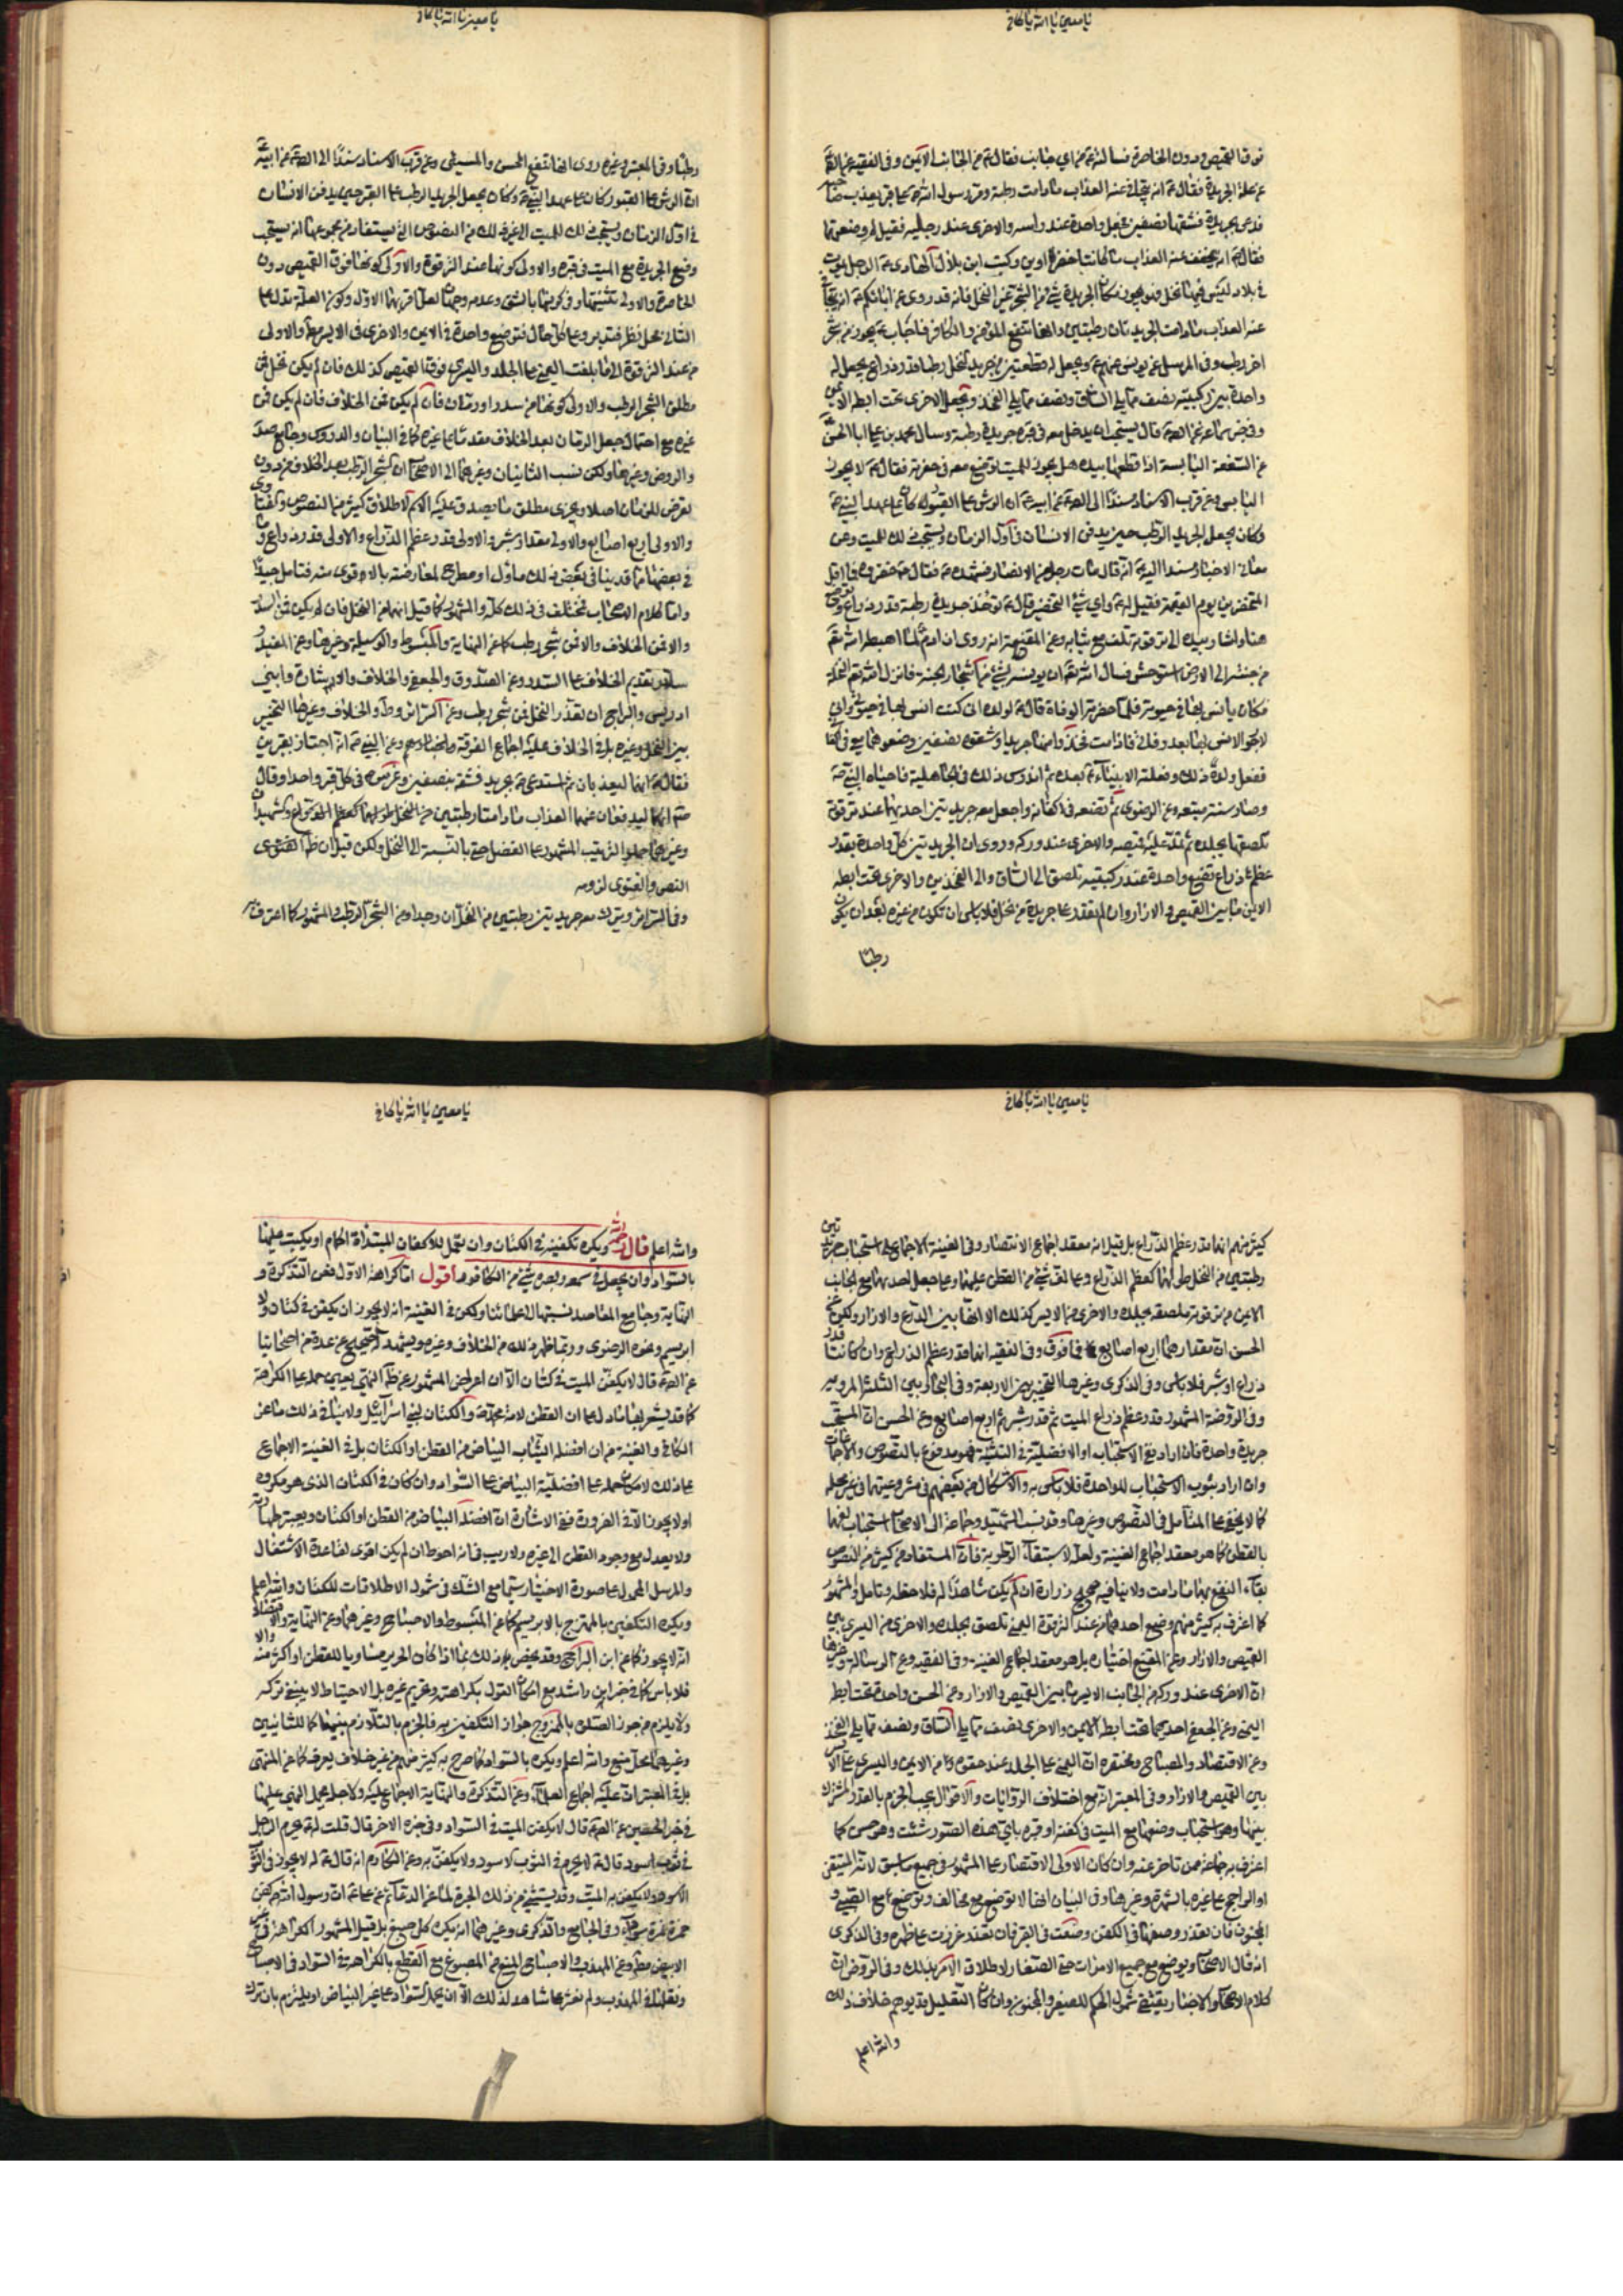 يا معين يا الله يا كافي
فوق القميص ودون الخاصرة فسألته من اي جانب فقال من الجانب الايمن وفي الفقيه
عن علة الجريدة فقال انه يتجافى عنه العذاب ما دامت رطبة ومر رسول الله على قبر يعذب صاحبه
فدعى بجريدة فشقها نصفين فجعل واحدة عند راسه والاخرى عند رجليه فقيل لم وضعتها
فقال انه يخفف عنه العذاب ما كانتا خضراوين وكتب ابن بلال الى الهادي الرجل يموت
في بلاد ليس فيها نخل فهل يجوز مكان الجريدة شيء من الشجر غير النخل فانه قد روي عن ابائكم انه يتجافى
عنه العذاب ما دامت الجريدتان رطبتين وانها تنفع المؤمن والكافر فاجاب يجوز من شجر
اخر رطب وفي المرسل عن يونس عنهم ويجعل له قطعتين من جريد النخل رطبا قدر ذراع يجعل له
واحدة بين ركبتيه نصف مما يلي الساق ونصف مما يلي الفخذ ويجعل الاخرى تحت ابطه الايمن
وفي خبر سماعة عن قال يستحب ان يدخل معه في قبره جريدة رطبة وسال محمد بن علي ابا الحسن
عن السعفة اليابسة اذا قطعها بيده هل يجوز للميت توضع معه في حفرته فقال لا يجوز
اليابس وعن قرب الاسناد مسندا الى عن ابيه ان الرش على القبور كان على عهد النبي
وكان يجعل الجريد الرطب حين يدفن الانسان في اول الزمان ويستحب ذلك للميت وعن
معاني الاخبار مسندا اليه انه قال مات رجل من الانصار فشهده فقال خضروه فما اقل
المخضرين يوم القيمة فقيل له واي شيء التخضير قال تؤخذ جريدة رطبة قدر ذراع
هنا واشار بيده الى ترقوته تلف مع ثيابه وعن المقنعة انه روي ان ادم لما اهبطه الله
من جنته الى الارض استوحش فسال الله ان يونسه بشيء من اشجار الجنة فانزل الله النخلة
فكان يانس بها في حيوته فلما حضرته الوفاة قال لولده اني كنت انس بها في حيوتي واني
لارجو الانس بها بعد وفاتي فاذا مت فخذوا منها جريدا وشقوه بنصفين وضعوهما معي في اكفاني
ففعل ولده ذلك وفعلته الانبياء بعده ثم اندرس ذلك في الجاهلية فاحياه النبي
وصار سنة متبعة وعن الرضوي ثم تضعه في اكفانه واجعل معه جريدتين احديهما عند ترقوته
تلصقها بجلده ثم تمد عليه قميصه والاخرى عند وركه وروي ان الجريدتين كل واحدة بقدر
عظم ذراع تضع واحدة عند ركبتيه تلصق الى الساق والى الفخذين والاخرى تحت ابطه
الايمن ما بين القميص والازار وان لم يقدر على جريدة من نخل فلا باس ان تكون من غيره بعد ان يكون
رطبا
يا معين يا الله يا كافي
رطبا وفي المعتبر وغيره روى انها تنفع المحسن والمسيئ وعن قرب الاسناد مسندا الى عن ابيه
ان الرش على القبور كان على عهد النبي وكان يجعل الجريد الرطب على القبر حين يدفن الانسان
في اول الزمان ويستحب ذلك للميت الى غير ذلك من النصوص التي يستفاد من مجموعها انه يستحب
وضع الجريدة مع الميت في قبره والاولى كونها عند الترقوة والاولى كونها فوق القميص دون
الخاصرة والاولى تثنيتها وفي كونها بالشق وعدمه وجهان لعل اقربهما الاول وكون العلة تدل على
الثاني محل نظر فتدبر وعلى كل حال فتوضع واحدة في الايمن والاخرى في الايسر والاولى
من عند الترقوة الى ما بلغت اليمنى على الجلد واليسرى فوق القميص كذلك فان لم يكن نخل فمن
مطلق الشجر الرطب والاولى كونها من سدر او رمان فان لم يكن فمن الخلاف فان لم يكن فمن
غيره مع احتمال جعل الرمان بعد الخلاف مقدما على غيره كما في البيان والدروس وجامع صد
والروض وغيرها ولكن نسب الثانيان وغيرهما الى الاصحاب ان شجر الرطب بعد الخلاف من دون
تعرض للرمان اصلا ويجزى مطلق ما يصدق عليه الاسم لاطلاق كثير من النصوص والفتاوى
والاولى اربع اصابع والاولى مقدار شبر والاولى قدر عظم الذراع والاولى قدر ذراع
في بعضها ما قد ينافي بعض ذلك ماول او مطرح لمعارضته بالاقوى منه فتامل جيدا
واما كلام الاصحاب فمختلف في ذلك كله والمشهور كما قيل انها من النخل فان لم يكن فمن السدر
والا فمن الخلاف والا فمن شجر رطب كما عن النهاية والمبسوط والوسيلة وغيرها وعن المفيد
تقديم الخلاف على السدر وعن الصدوق والجعفي والخلاف والاشارة وابني
ادريس والبراج ان تعذر النخل فمن شجر رطب وعن وط والخلاف وغيرها التخيير
بين النخل وغيره بل في الخلاف عليه اجماع الفرقة واخبارهم وعن النبي انه اجتاز بقبرين
فقال انهما ليعذبان ثم استدعى بجريدة فشقها بنصفين وغرس في كل قبر واحدا وقال
انهما ليدفعان عنهما العذاب ما دامتا رطبتين
وغيرهما حملوا الترتيب المشهور على الفضل حتى بالنسبة الى النخل ولكن قيل ان ظاهر الفتوى
النص والفتوى لزومه
وفي السرائر ويترك معه جريدتين رطبتين من النخل ان وجد او من الشجر الرطب والمشهور كما اعترف به
يا معين يا الله يا كافي
كثير منهم انها قدر عظم الذراع بل قيل انه معقد اجماع الانتصار وفي الغنية الاجماع على استحباب جريدتين
رطبتين من النخل طولهما كعظم الذراع وعلى لف شيء من القطن عليهما وعلى جعل احديهما مع الجانب
الايمن من ترقوته ملصقة بجلده والاخرى من الايسر كذلك الا انها بين الدرع والازار ولكن عن
الحسن ان مقدارهما اربع اصابع فما فوق وفي الفقيه انها قدر عظم الذراع وان كانتا قدر
ذراع او شبر فلا باس وفي الذكرى وغيرها التخيير بين الاربعة وفي البحار بين الثلثة المروية
وفي الروضة المشهور قدر عظم ذراع الميت ثم قدر شبر ثم اربع اصابع وعن الحسن ان المستحب
جريدة واحدة فان اراد نفي الاستحباب او الافضلية في التثنية فهو مدفوع بالنصوص والاجماعات
وان اراد ثبوت الاستحباب للواحدة فلا باس به والاشكال من بعضهم في مشروعيتها في غير محله
كما لا يخفى على المتامل في النصوص وغيرها وقد نسب الشهيد وجماعة الى الاصحاب استحباب لفها
بالقطن كما هو معقد اجماع الغنية ولعله لاستبقاء الرطوبة فان المستفاد من كثير من النصوص
بقاء النفع بها ما دامت ولا ينافيه صحيح زرارة ان لم يكن شاهدا له فلاحظه وتامل والمشهور
كما اعترف به كثير منهم وضع احدهما من عند الترقوة اليمنى تلصق بجلده والاخرى من اليسرى بين
القميص والازار وعن المقنع اختياره بل هو معقد اجماع الغنية وفي الفقيه وعن الرسالة
ان الاخرى عند وركه من الجانب الايسر ما بين القميص والازار وعن الحسن واحدة تحت ابطه
اليمنى وعن الجعفي احديهما تحت ابطه الايمن والاخرى نصف مما يلي الساق ونصف مما يلي الفخذ
وعن الاقتصاد والمصباح ومختصره ان اليمنى على الجلد عند حقوه من الايمن واليسرى على الايسر
بين القميص والازار وفي المعتبر انه مع اختلاف الروايات والاقوال يجب الجزم بالقدر المشترك
بينها وهو استحباب وضعها مع الميت في كفنه او قبره باي هذه الصور شئت وهو حسن كما
اعترف به جماعة ممن تاخر عنه وان كان الاولى الاقتصار على المشهور في جميع ما سبق لانه المتيقن
او الراجح على غيره بالشهرة وغيرها وفي البيان انها لا توضع مع مخالف وتوضع مع الصبي و
المجنون فان تعذر وضعها في الكفن وضعت في القبر فان تعذر غرزت على ظهره وفي الذكرى
انه قال الاصحاب وتوضع مع جميع الاموات حتى الصغار لاطلاق الامر بذلك وفي الروض ان
كلام الاصحاب والاخبار يقتضي شمول الحكم للصغير والمجنون وان كان التعليل قد يوهم خلاف ذلك
والله اعلم
يا معين يا الله يا كافي
والله اعلم قال رحمه الله ويكره تكفينه في الكتان وان تعمل للاكفان المبتداة اكمام او يكتب عليها
بالسواد وان يجعل في سمعه وبصره شيء من الكافور اقول اما كراهة الاول فعن التذكرة و
النهاية وجامع المقاصد نسبتها الى علمائنا ولكن في الغنية انه لا يجوز ان يكفن في كتان ولا
ابريسم ونحوه الرضوي وربما ظهر ذلك من الخلاف وغيره ويشهد له صحيح عن عدة من اصحابنا
عن قال لا يكفن الميت في كتان الا ان اعراض المشهور عن ظاهر النهي يعين حمله على الكراهة
كما قد يشعر به ما دل على ان القطن لامة محمد والكتان لبني اسرائيل ولا ينافي ذلك ما عن
الكافي والغنية من ان افضل الثياب البياض من القطن او الكتان بل في الغنية الاجماع
على ذلك لامكان حمله على افضلية البياض على السواد وان كان في الكتان الذي هو مكروه
او لا يجوز الا في الضرورة ففي الاشارة ان افضله البياض من القطن او الكتان ويعتبر طهارته
ولا يعدل مع وجود القطن الى غيره ولا ريب في انه احوط ان لم يكن اقوى لقاعدة الاشتغال
والمرسل المحمول على صورة الاختيار سيما مع الشك في شمول الاطلاقات للكتان والله اعلم
ويكره التكفين بالممتزج بالابريسم كما عن المبسوط والاصباح وغيرهما وعن النهاية
انه لا يجوز كما عن ابن البراج وقد يخص ذلك بما اذا كان الحرير مساويا للقطن او اكثر منه والا
فلا باس كما في خبر ابن راشد مع امكان القول بكراهته وتحريم غيره بل الاحتياط لا ينبغي تركه
ولا يلزم من جواز الصلاة بالممزوج جواز التكفين به فالجزم بالتلازم بينهما كما للثانيين
وغيرهما محل منع والله اعلم ويكره بالسواد كما صرح به كثير منهم من غير خلاف يعرف كما عن المنتهى
بل في المعتبر ان عليه اجماع العلماء وعن التذكرة والنهاية الاجماع عليه ولاجله يحمل النهي عليها
في خبر الحسين عن قال لا يكفن الميت في السواد وفي خبره الاخر قال قلت له يحرم الرجل
في ثوب اسود قال لا يحرم في الثوب الاسود ولا يكفن به وعن المكارم انه قال له لا يجوز في الثوب
الاسود ولا يكفن به الميت وقد يستثنى من ذلك الحبرة لما عن الدعائم عن علي ان رسول الله كفن
حمزة نمرة سوداء وفي الجامع والذكرى وغيرهما انه يكره كل صبغ بل قيل المشهور كراهة غير
الابيض مطلقا وعن المهذب والاصباح المنع من المصبوغ مع القطع بالكراهة في السواد في الاصباح
ونقلها في المهذب ولم نعثر على شاهد لذلك الا ان يحمل السواد على غير البياض او يلتزم بان ترك